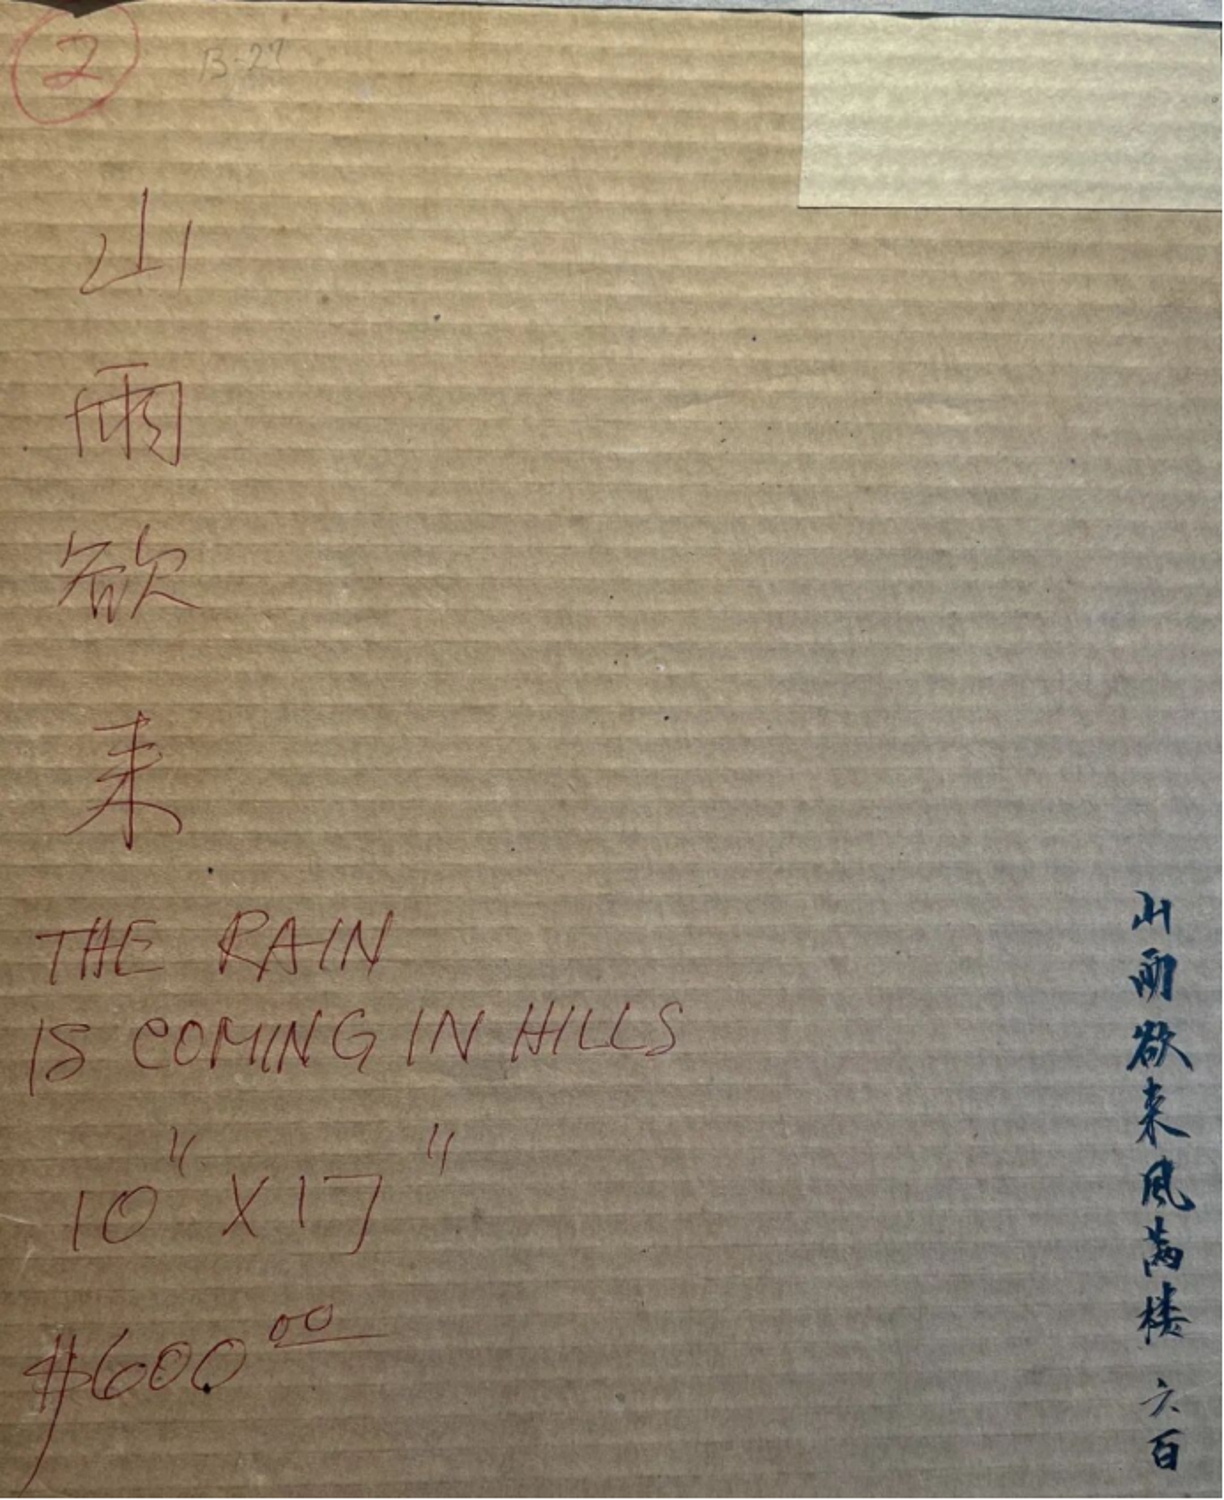 2
B-27
山雨欲来
THE RAIN
IS COMING IN HILLS
10" X 17"
$600 00
山雨欲来风满楼 六百